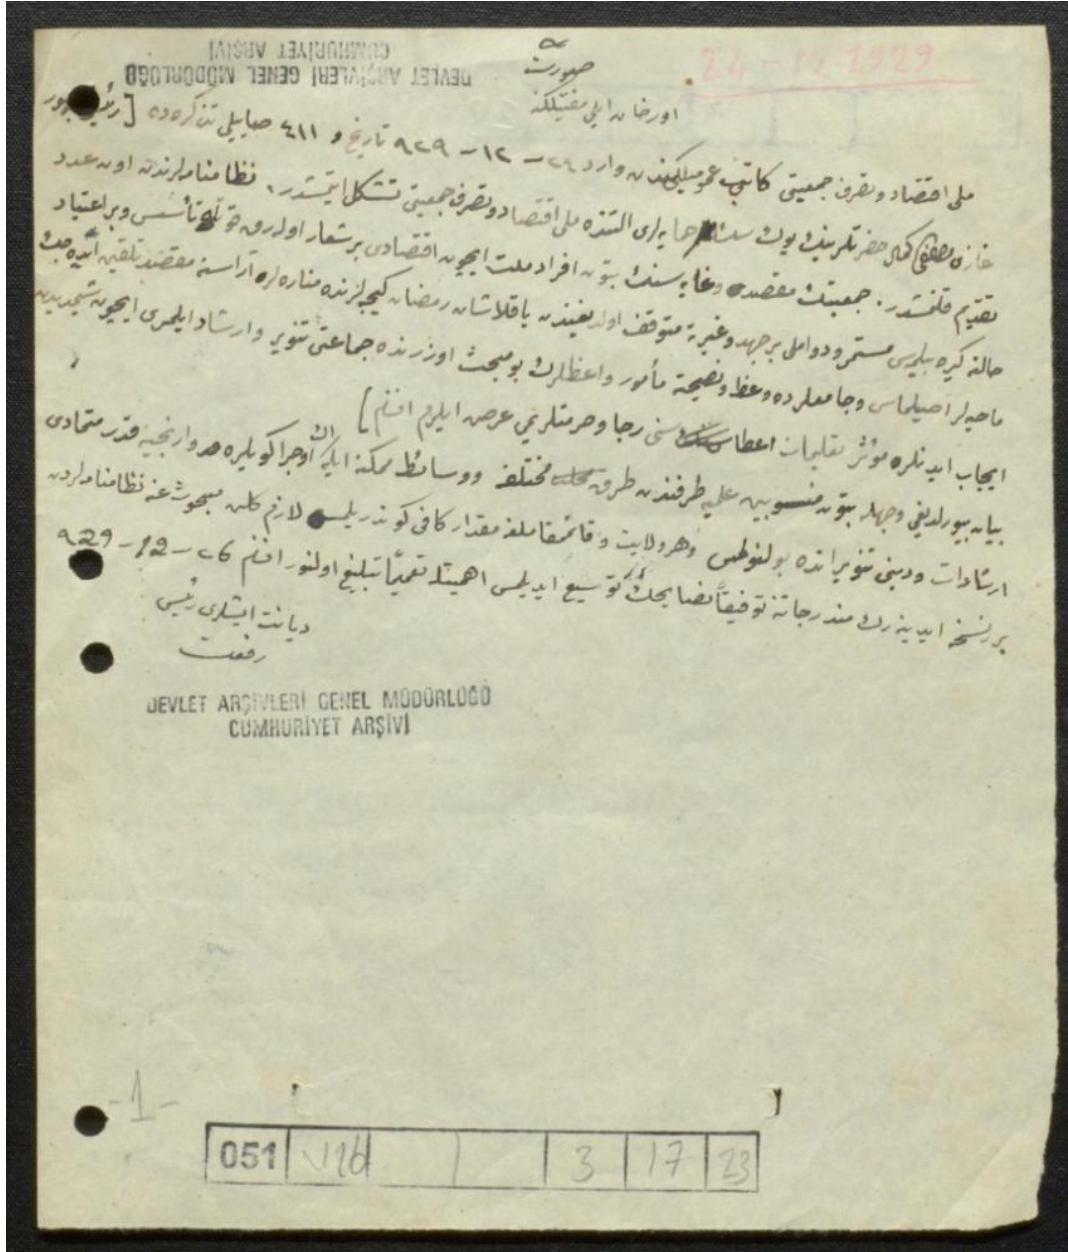 DEVLET ARŞİVLERİ GENEL MÜDÜRLÜĞÜ
CUMHURİYET ARŞİVİ
24-12-1929
صورت
اورخان ایلی مفتیلگنه
ملی اقتصاد و تصرف جمعیتی کاتب عمومیلیگندن وارد ٢٤-١٢-٩٢٩ تاریخ و ٤١١ صاییلی تذکره‌ده [رئیس جمهور
غازی مصطفی کمال حضرتلرینك یوك حمایه‌لری التنده ملی اقتصاد و تصرف جمعیتی تشکل ایتمشدر. نظامنامه‌لرندن اون عدد
تقدیم قلنمشدر. جمعیتك مقصد و غایه سنك بتون افراد ملت ایچون اقتصادی بر شعار اوله‌رق تأسس و بر اعتیاد
حالنه کیره بیلمسی مستمر و دواملی بر جهد و غیرته متوقف اولدیغندن یاقلاشان رمضان کیجه‌لرنده مناره‌لره آراسنه مقصد تلقین ایده‌جك
ماحیه‌لر اصیلماسی و جامعلرده وعظ و نصیحته مأمور واعظلرك بو مبحث اوزرنده جماعتی تنویر و ارشاد ایلمه‌لری ایچون شیمدیدن
ایجاب ایدنلره مؤثر تعلیمات اعطاسنی رجا و حرمتلریمی عرض ایلرم افندم]
بیان بیورلدیغی وجهله بتون منسوبین علمیه طرفندن طرق مختلفه و وسائط ممکنه ایله اك اوجرا کویلره وارنجیه قدر متمادی
ارشادات و دینی تنویراتده بولنولمسی و هر ولایت و قائمقاملغه مقدار کافی کوندریلمسی لازم کلن مبحوث عنه نظامنامه‌لردن
بر نسخه ایدینه‌رك مندرجاتنه توفیقاً نصایحك توسیع ایدیلمسی اهمیتله تعمیماً تبلیغ اولنور افندم ٢٦-12-929
دیانت ایشلری رئیسی
رفعت
DEVLET ARŞİVLERİ GENEL MÜDÜRLÜĞÜ
CUMHURİYET ARŞİVİ
-1-
051 V26 3 17 23